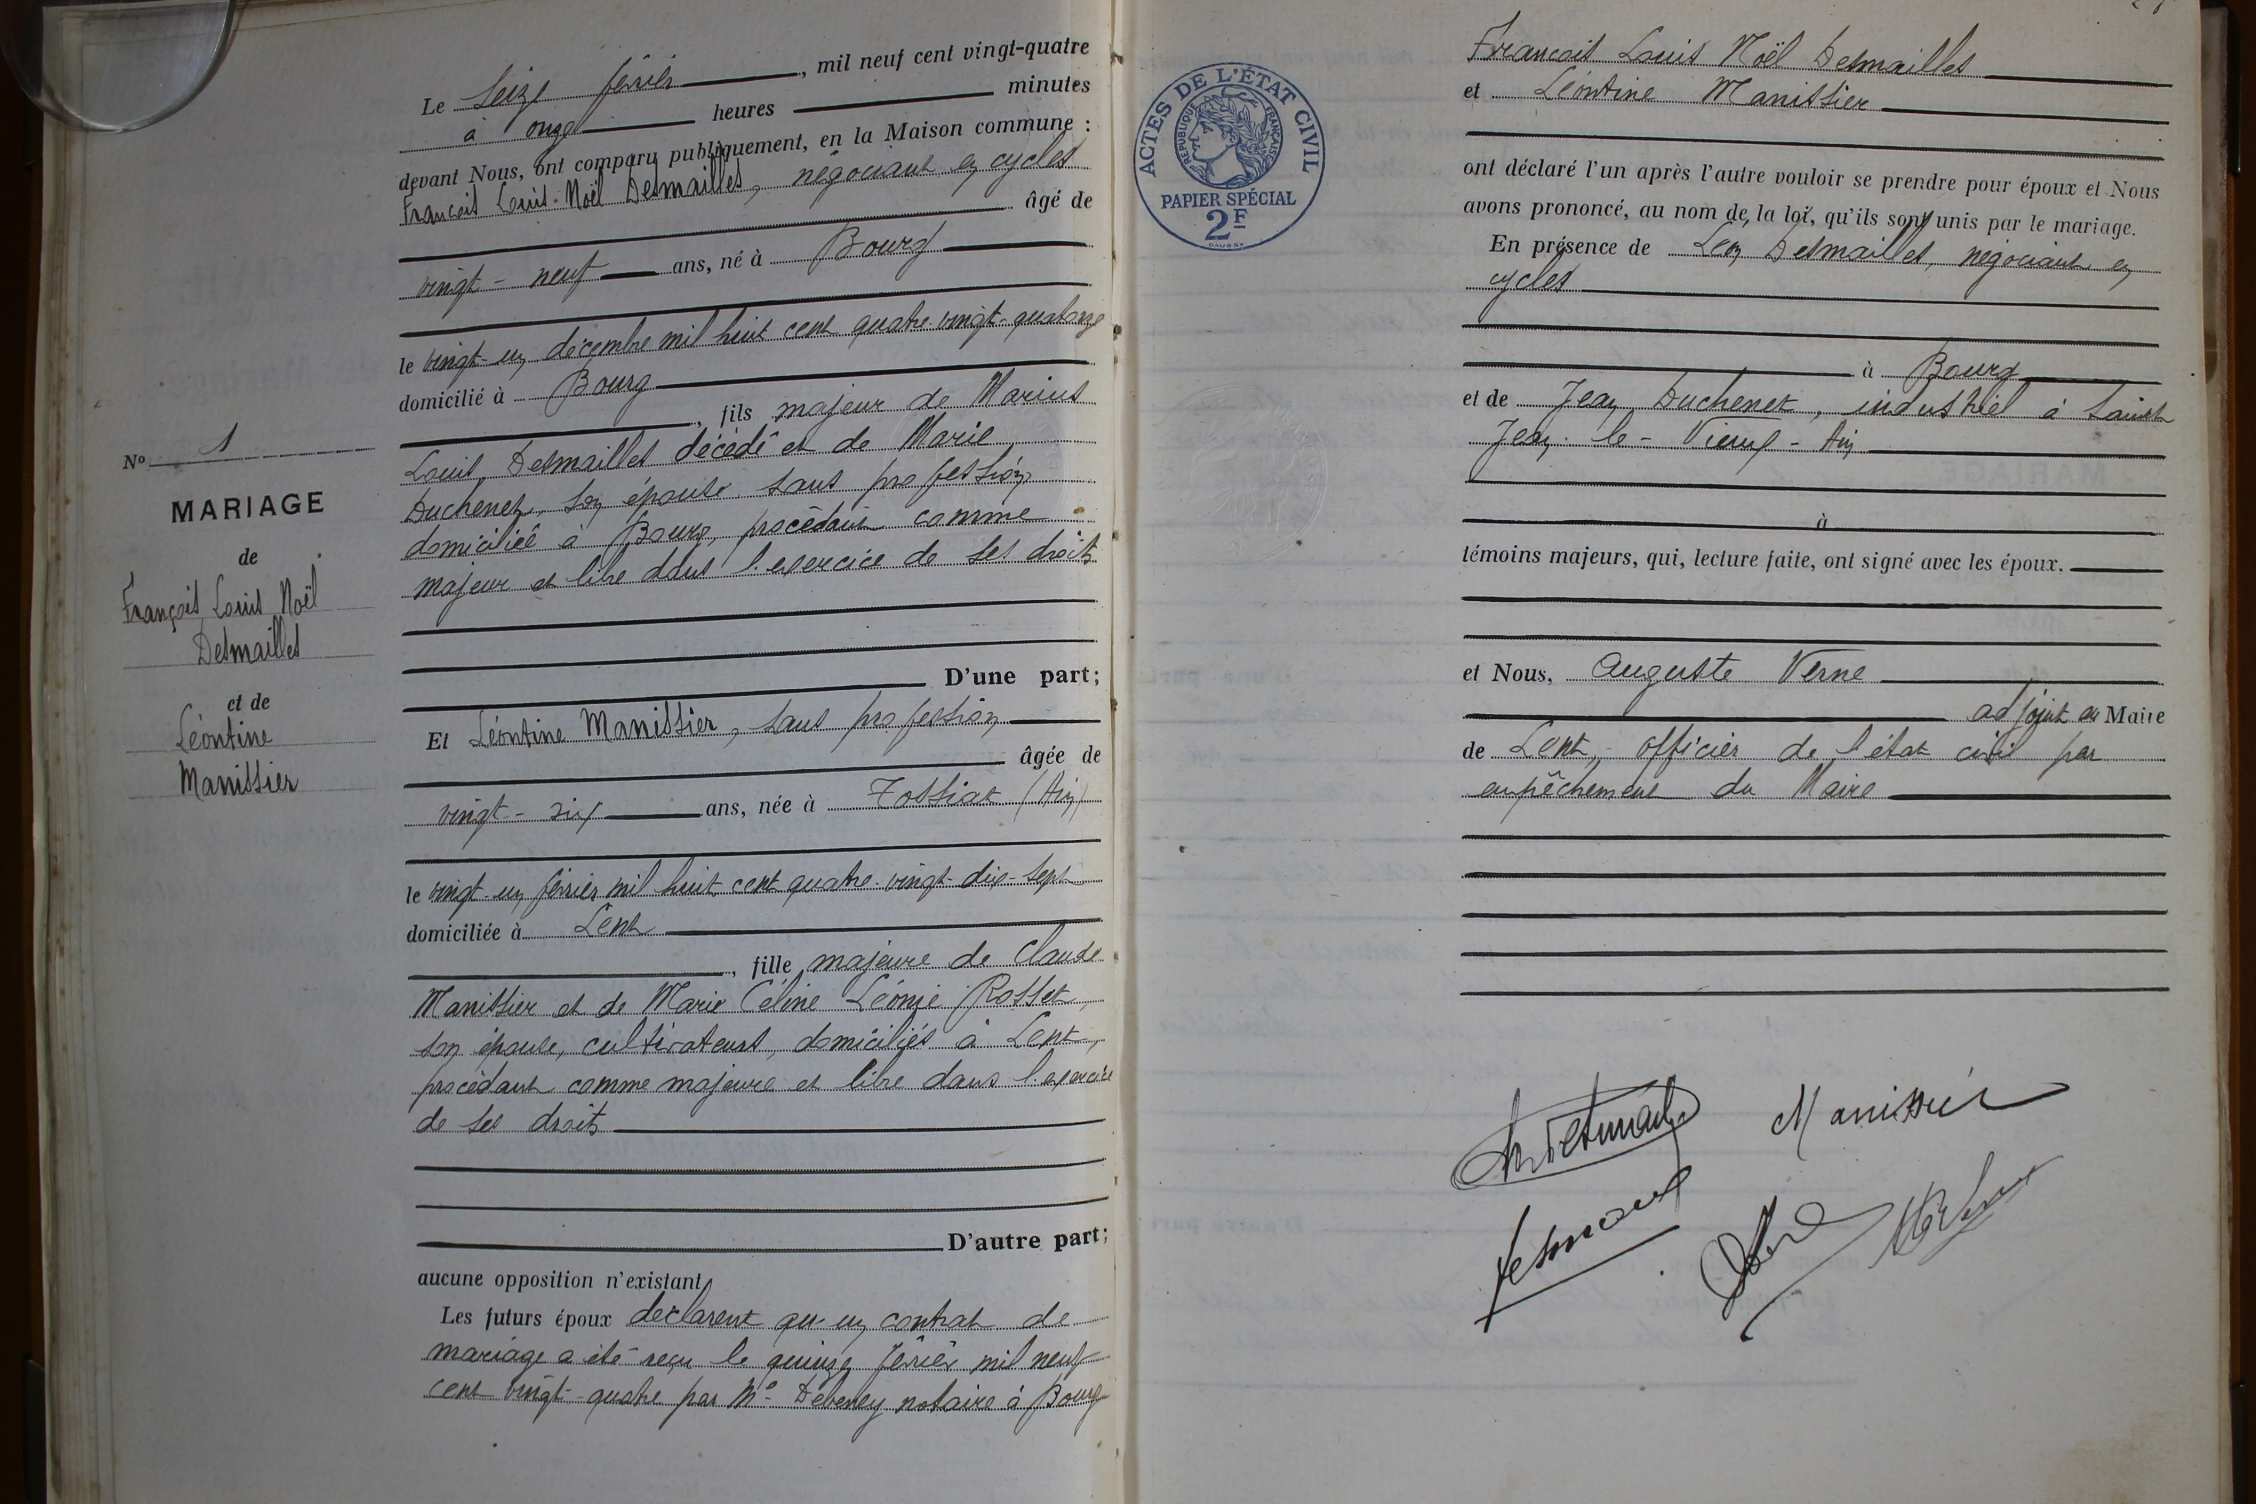 Le Seize février, mil neuf cent vingt-quatre
à onze heures minutes
devant Nous, ont comparu publiquement, en la Maison commune :
François Louis Noël Desmailles, négociant en cycles
âgé de
vingt-neuf ans, né à Bourg
le vingt-un décembre mil huit cent quatre-vingt-quatorze
domicilié à Bourg
, fils majeur de Marius
Louis Desmailles décédé et de Marie
Duchenet, son épouse sans profession
domiciliée à Bourg, procédant comme
majeur et libre dans l'exercice de ses droits
D'une part;
Et Léontine Manissier, sans profession
âgée de
vingt-six ans, née à Tossiat (Ain)
le vingt-un février mil huit cent quatre-vingt-dix-sept
domiciliée à Lent
, fille majeure de Claude
Manissier et de Marie Céline Léonie Rosset,
son épouse, cultivateurs, domiciliés à Lent,
procédant comme majeure et libre dans l'exercice
de ses droits
D'autre part;
aucune opposition n'existant
Les futurs époux déclarent qu'un contrat de
mariage a été reçu le quinze février mil neuf
cent vingt-quatre par Me Débeney notaire à Bourg
No 1
MARIAGE
de
François Louis Noël
Desmailles
et de
Léontine
Manissier
ACTES DE L'ÉTAT CIVIL
RÉPUBLIQUE FRANÇAISE
PAPIER SPÉCIAL
2F
François Louis Noël Desmailles
et Léontine Manissier
ont déclaré l'un après l'autre vouloir se prendre pour époux et Nous
avons prononcé, au nom de la loi, qu'ils sont unis par le mariage.
En présence de Léon Desmailles, négociant en
cycles
à Bourg
et de Jean Duchenet, industriel à Saint
Jean-le-Vieux-Ain
à
témoins majeurs, qui, lecture faite, ont signé avec les époux.
et Nous, Auguste Verne
adjoint au Maire
de Lent, officier de l'état civil par
empêchement du Maire
Manissier